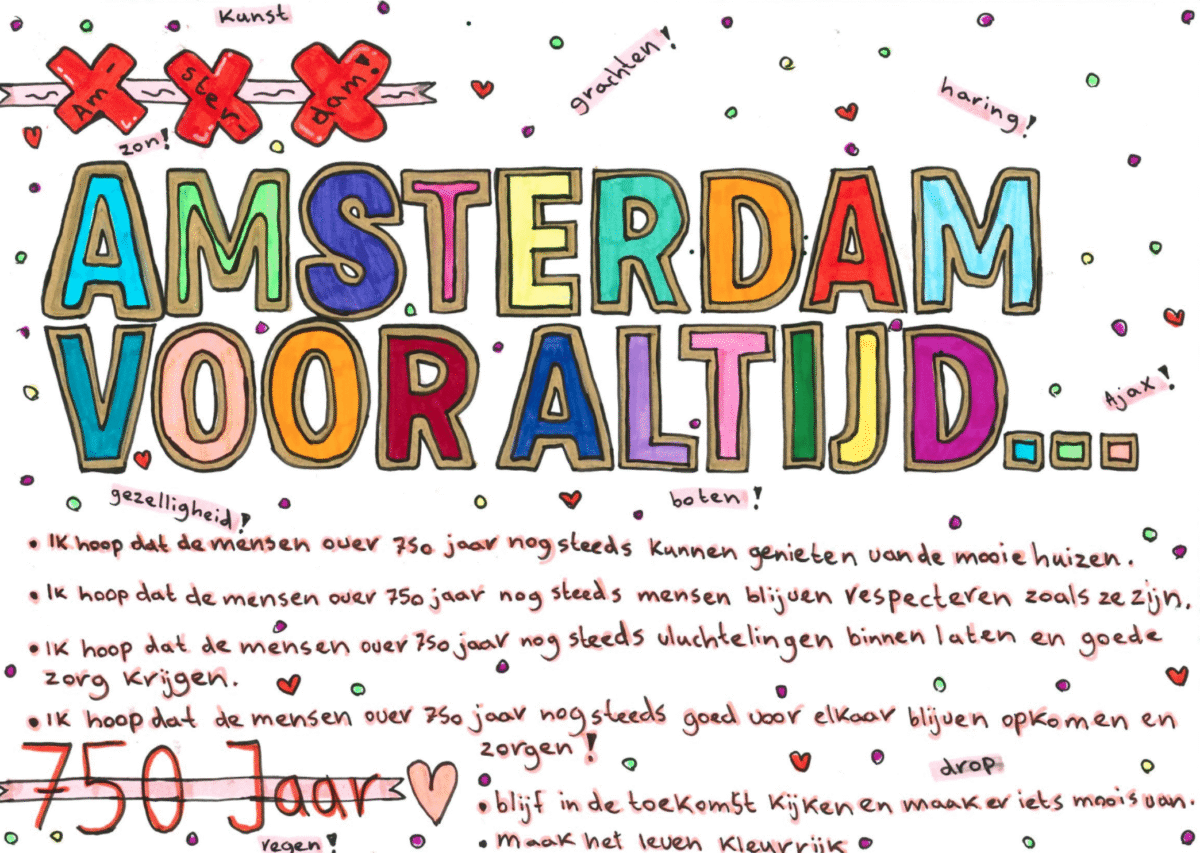 Kunst
grachten!
haring!
Am-
ster-
dam!
zon!
AMSTERDAM
VOOR ALTIJD...
Ajax!
gezelligheid!
boten!
• Ik hoop dat de mensen over 750 jaar nog steeds kunnen genieten van de mooie huizen.
• Ik hoop dat de mensen over 750 jaar nog steeds mensen blijven respecteren zoals ze zijn.
• Ik hoop dat de mensen over 750 jaar nog steeds vluchtelingen binnen laten en goede
zorg krijgen.
• Ik hoop dat de mensen over 750 jaar nog steeds goed voor elkaar blijven opkomen en
zorgen!
750 Jaar
drop
• blijf in de toekomst kijken en maak er iets moois van.
• maak het leven kleurrijk
regen!